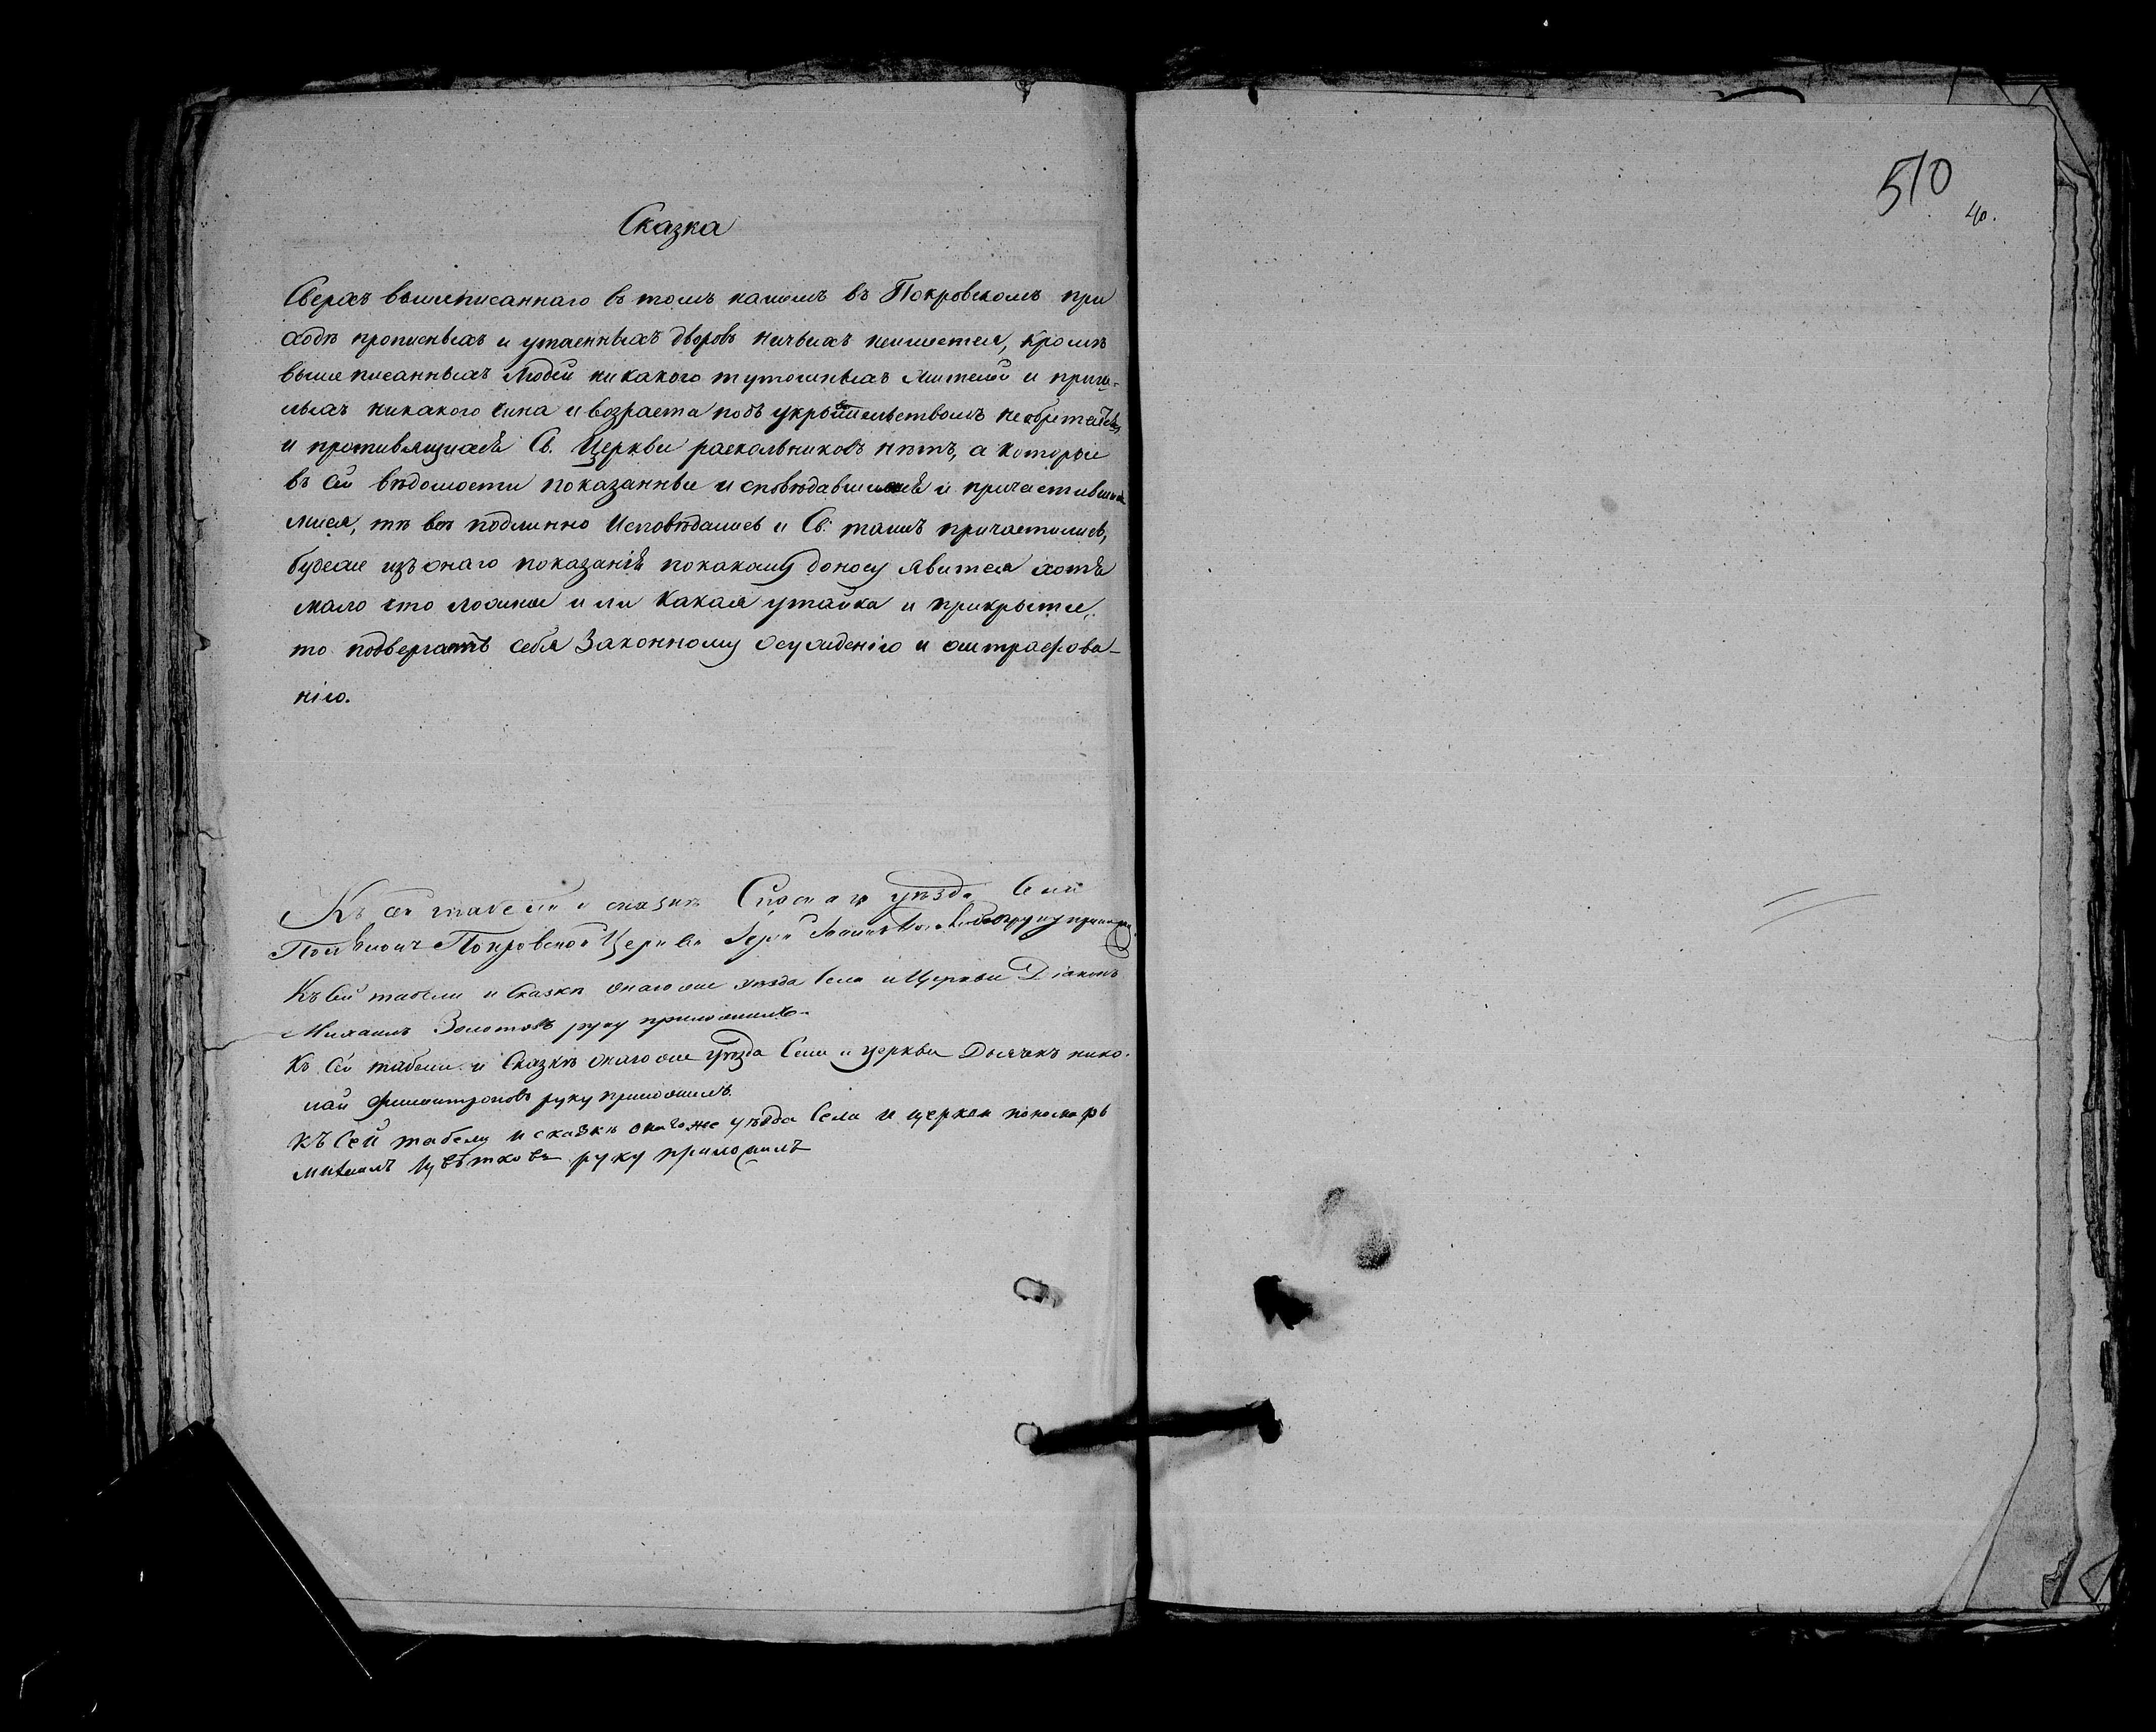 Сказка
Сверхъ вышеписаннаго въ томъ нашемъ въ Покровскомъ при
ходѣ прописныхъ и утаенныхъ дворовъ ничьихъ неимѣется, кромѣ
вышеписанныхъ людей никакого тутошныхъ жителей и пришѣ-
лыхъ никакого чина и возраста подъ укрывательствомъ необретается
и противящихся Св. Церкви раскольниковъ нѣтъ, а которые
въ сей вѣдомости показанные исповѣдавшимися и причастивши
мися, тѣ всѣ подлинно Исповѣдались и Св: таинъ причастились,
будеже изъ онаго показанія покакому доносу явится хотя
мало что ложное или какая утайка и прикрытіе,
то подвергаютъ себя Законному осужденію и оштрафова-
нію.
Къ сей табели и сказкѣ Спаскаго уѣзда Села
Покровской Церкви Іерей Іоаннъ руку приложилъ
Къ сей табели и Сказкѣ онагоже уѣзда Села и Церкви Діаконъ
Михаилъ Золотовъ руку приложилъ.
Къ Сей табели и Сказкѣ онагоже уѣзда Села и церкви Дьячекъ нико-
лай Филоитроповъ руку приложилъ.
къ Сей табели и сказкѣ онагоже уѣзда Села и церкви пономарь
михаилъ Цвѣтковъ руку приложилъ
510
40.